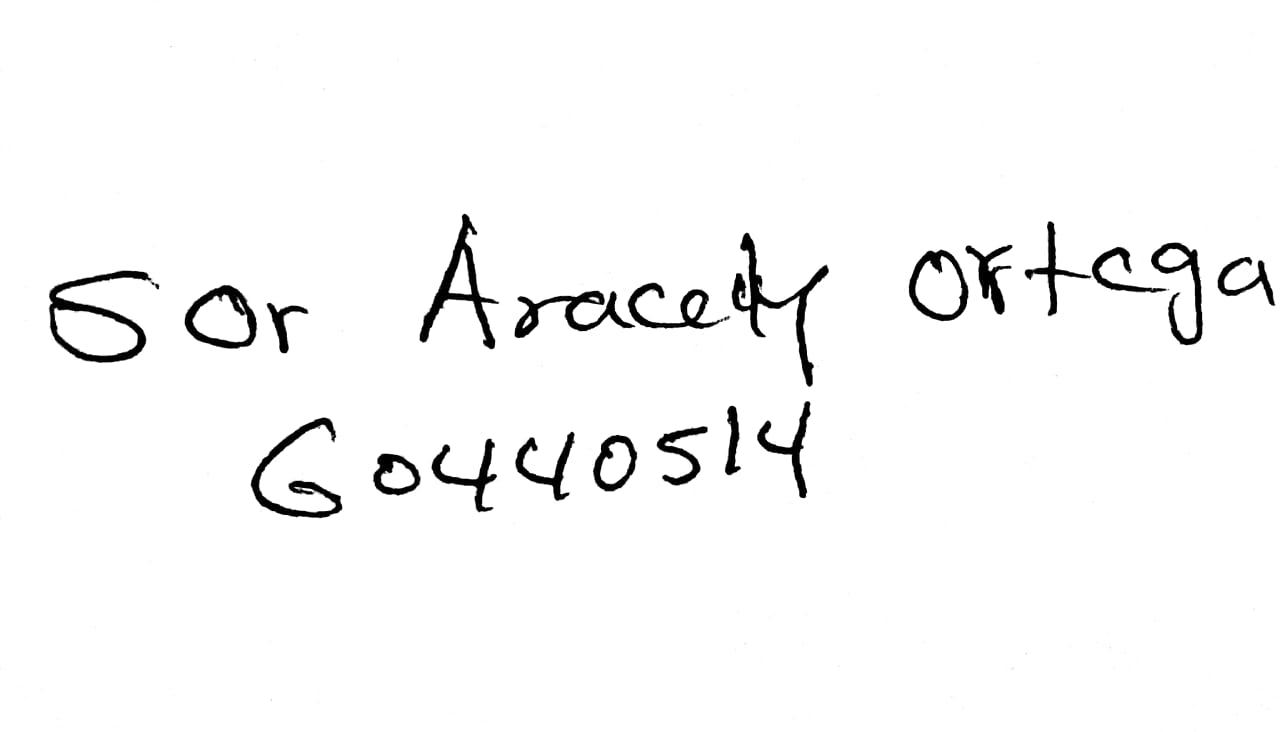 Sor Aracely Ortega
G0440514